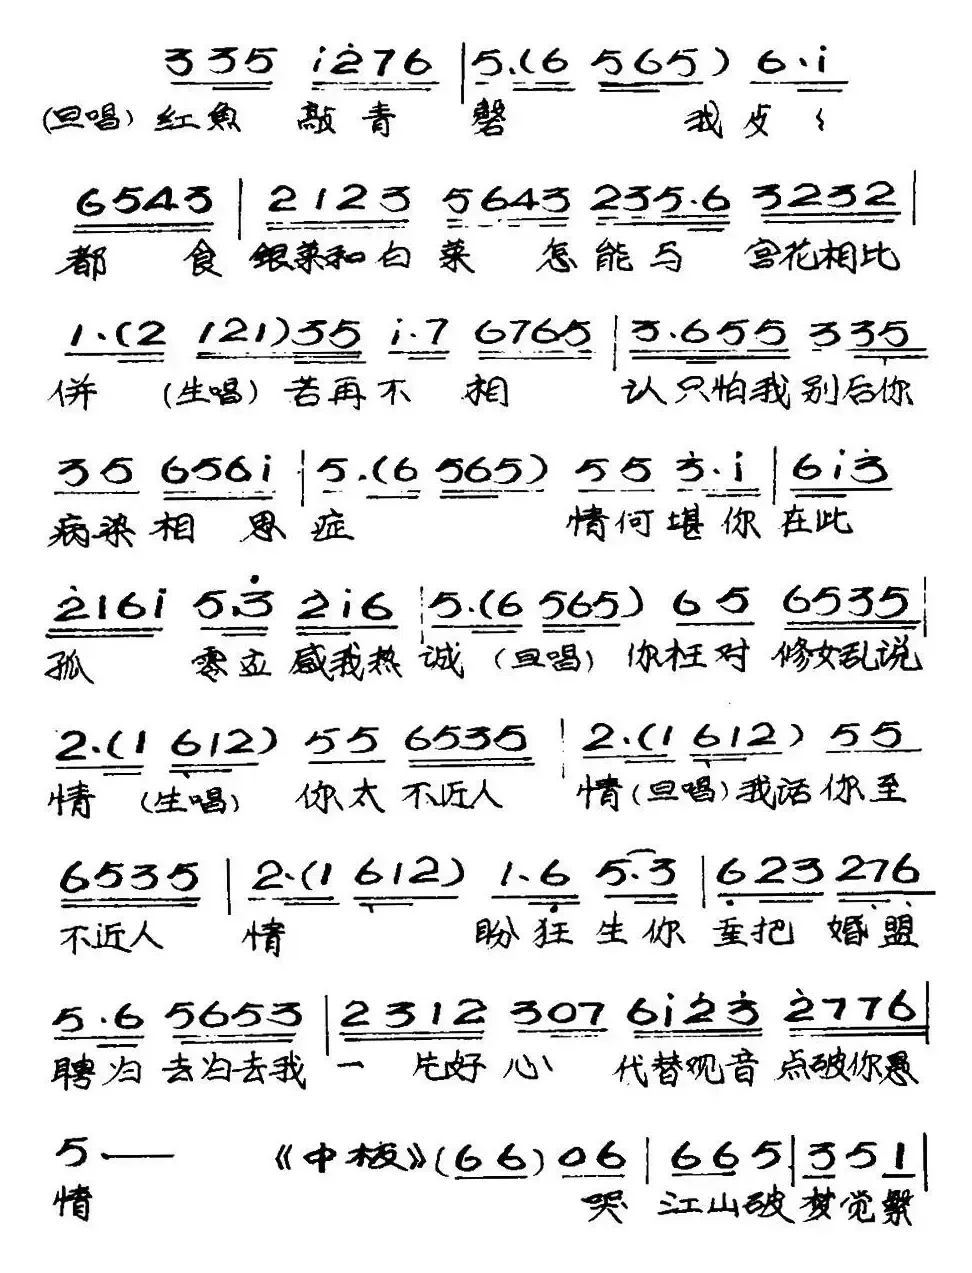 3 3 5 i 2 7 6 | 5.(6 5 6 5) 6.i
(旦唱) 红魚 敲青 磬 我 皮
6 5 4 3 | 2 1 2 3 5 6 4 3 2 3 5.6 3 2 3 2 |
都 食 銀菜和白菜 怎能与 宫花相比
1.(2 1 2 1) 3 5 i.7 6 7 6 5 | 3.6 5 5 3 3 5
併 (生唱) 若再不 相 认只怕我别后你
3 5 6 5 6 i | 5.(6 5 6 5) 5 5 3.i | 6 i 3
病染相 思 症 情何堪你在此
2 1 6 i 5.3 2 i 6 | 5.(6 5 6 5) 6 5 6 5 3 5 |
孤 零立感我热诚 (旦唱) 你枉对修女乱说
2.(1 6 1 2) 5 5 6 5 3 5 | 2.(1 6 1 2) 5 5
情 (生唱) 你太不近人 情 (旦唱) 我话你至
6 5 3 5 | 2.(1 6 1 2) 1.6 5.3 | 6 2 3 2 7 6
不近人 情 盼狂生你 重把婚盟
5.6 5 6 5 3 | 2 3 1 2 3 0 7 6 i 2 3 2 7 7 6 |
聘归去归去我一片好心 代替观音点破你愚
5.—— 《中板》(6 6) 0 6 | 6 6 5 | 3 5 1 |
情 哭 江山破梦觉繁